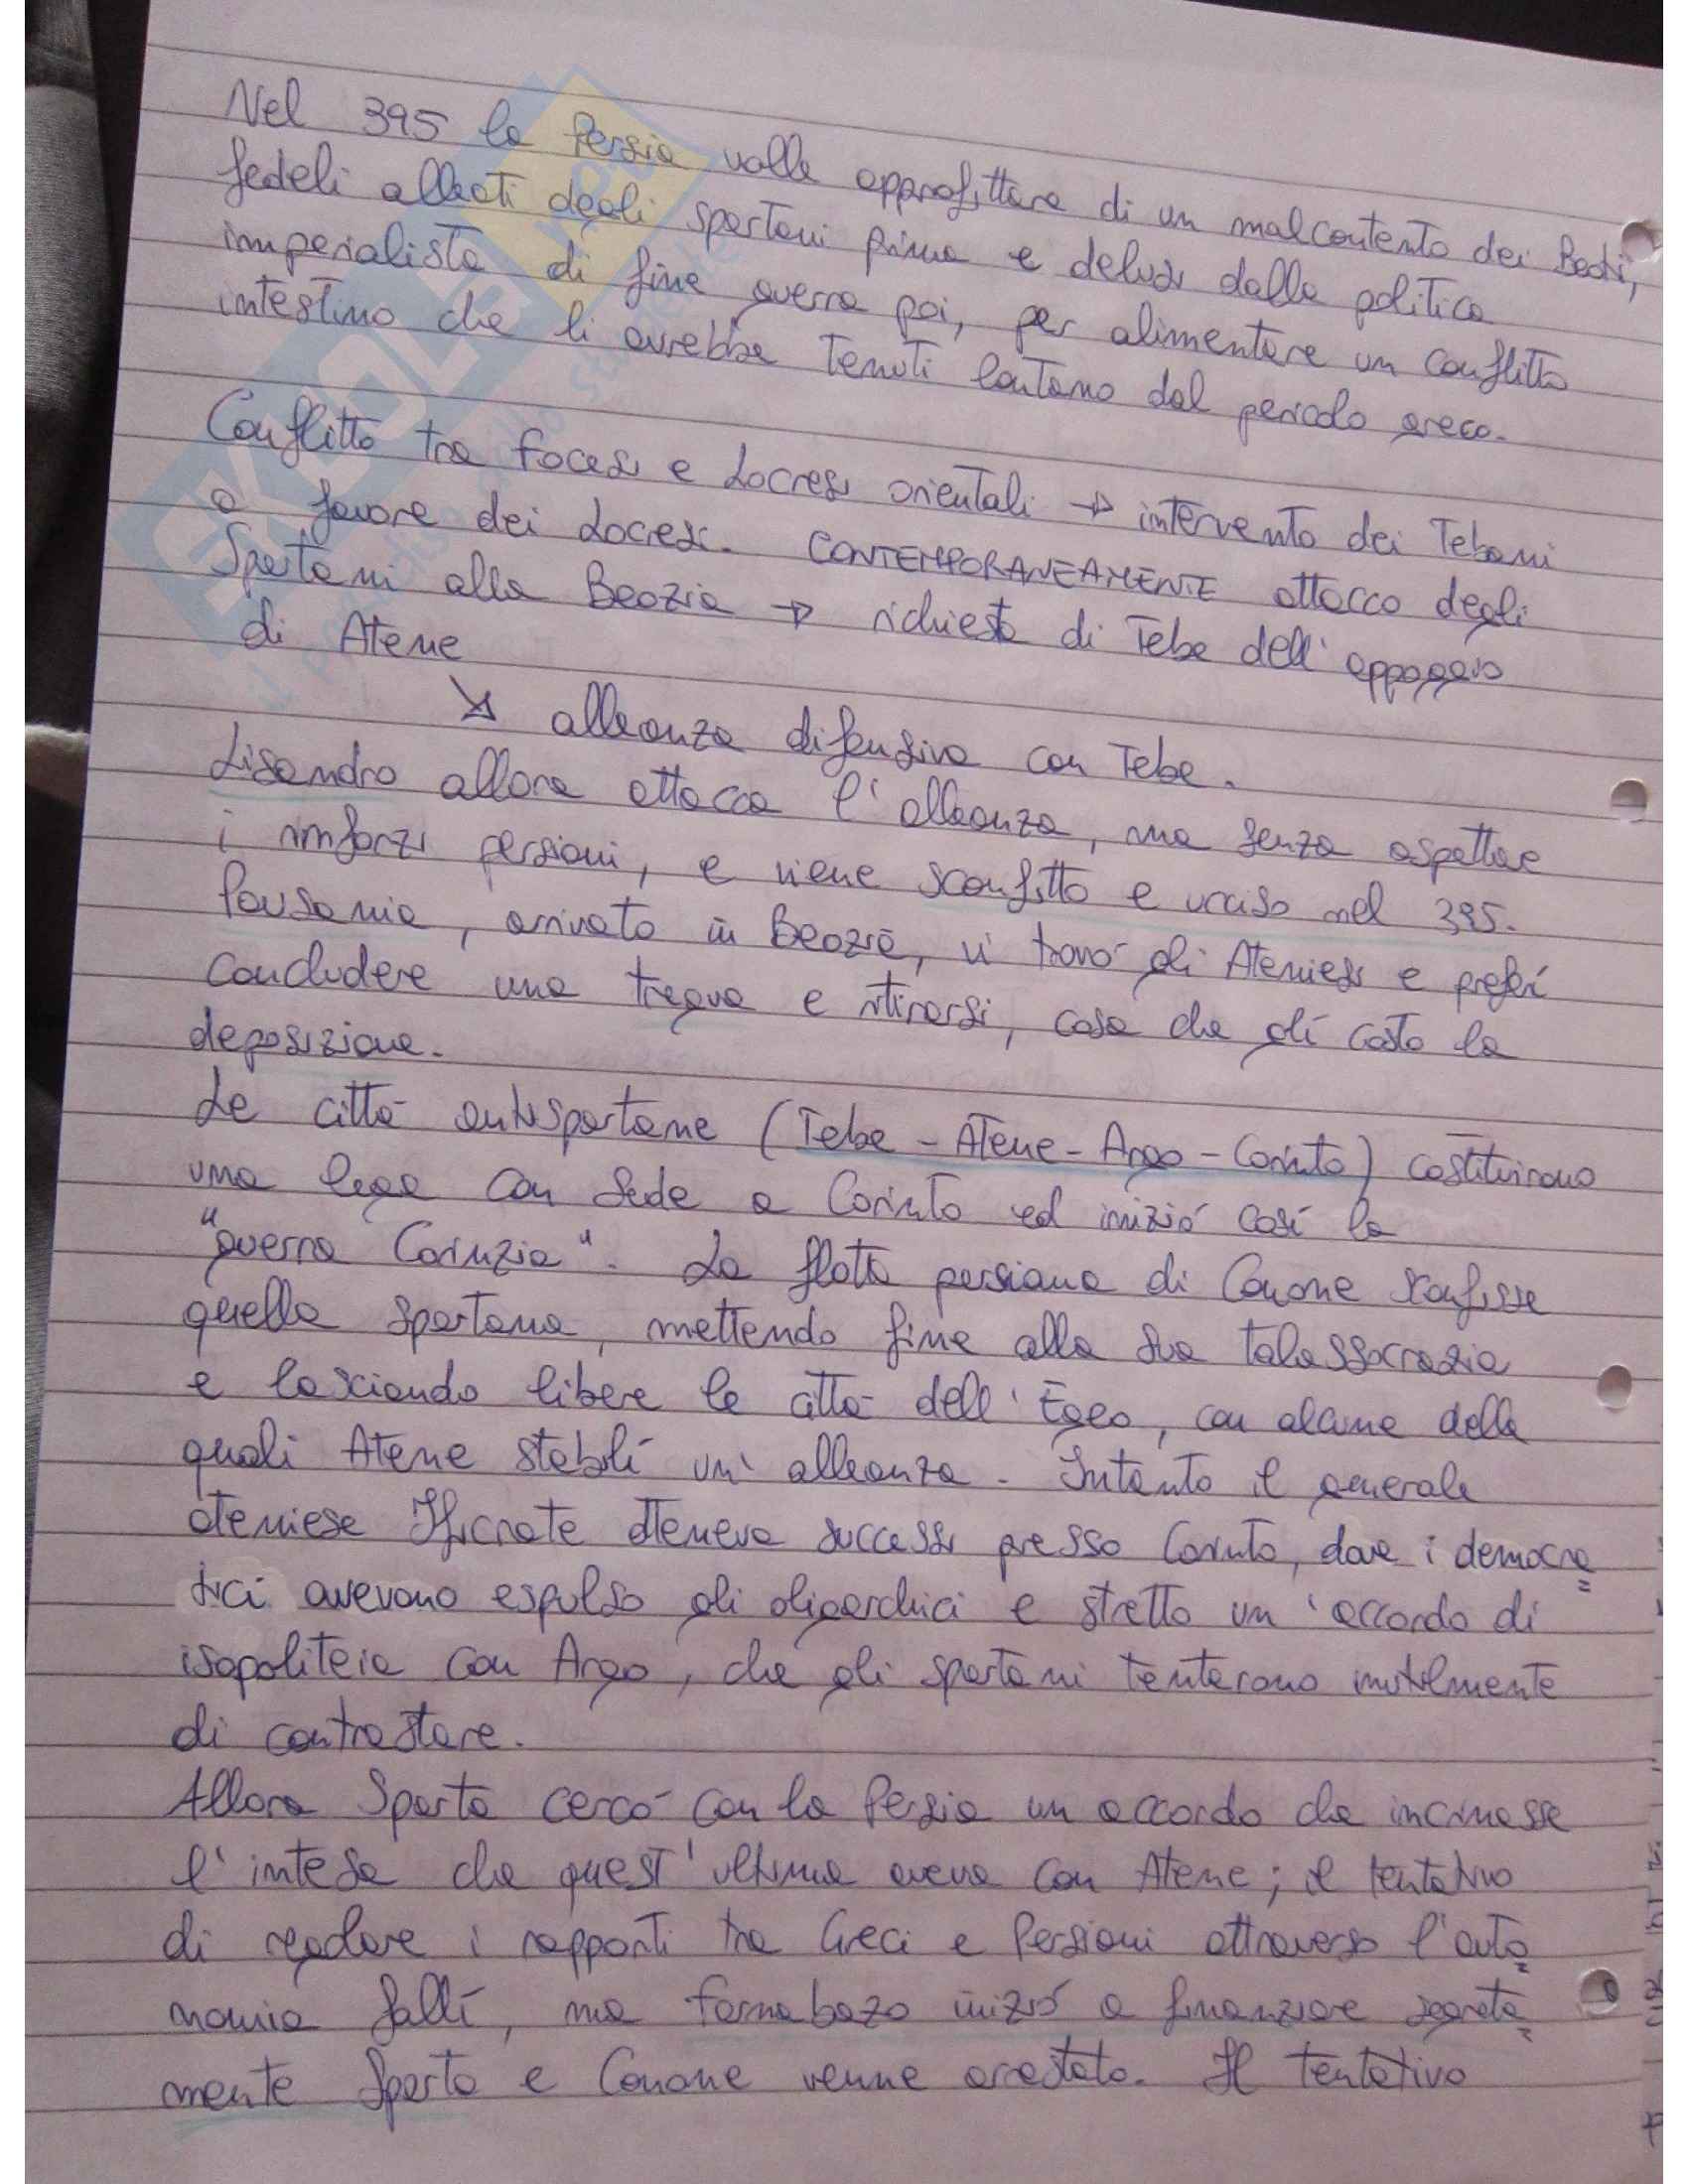 Nel 395 la Persia volle approfittare di un malcontento dei Beoti,
fedeli alleati degli spartani prima e delusi dalla politica
imperialista di fine guerra poi, per alimentare un conflitto
intestino che li avrebbe tenuti lontano dal pericolo greco.
Conflitto tra focesi e Locresi orientali → intervento dei Tebani
a favore dei Locresi. CONTEMPORANEAMENTE attacco degli
Spartani alla Beozia → richiesta di Tebe dell'appoggio
di Atene
↘ alleanza difensiva con Tebe.
Lisandro allora attacca l'alleanza, ma senza aspettare
i rinforzi persiani, e viene sconfitto e ucciso nel 395.
Pausania, arrivato in Beozia, vi trovò gli Ateniesi e preferì
concludere una tregua e ritirarsi, cosa che gli costò la
deposizione.
Le città antispartane (Tebe - Atene - Argo - Corinto) costituirono
una lega con sede a Corinto ed iniziò così la
"guerra Corinzia". La flotta persiana di Conone sconfisse
quella spartana, mettendo fine alla sua talassocrazia
e lasciando libere le città dell'Egeo, con alcune delle
quali Atene stabilì un'alleanza. Intanto il generale
ateniese Ificrate otteneva successi presso Corinto, dove i democra=
tici avevano espulso gli oligarchici e stretto un'accordo di
isopoliteia con Argo, che gli spartani tentarono inutilmente
di contrastare.
Allora Sparta cercò con la Persia un accordo che incrinasse
l'intesa che quest'ultima aveva con Atene; il tentativo
di regolare i rapporti tra Greci e Persiani attraverso l'auto=
nomia fallì, ma Farnabazo iniziò a finanziare segreta=
mente Sparta e Conone venne arrestato. Il tentativo